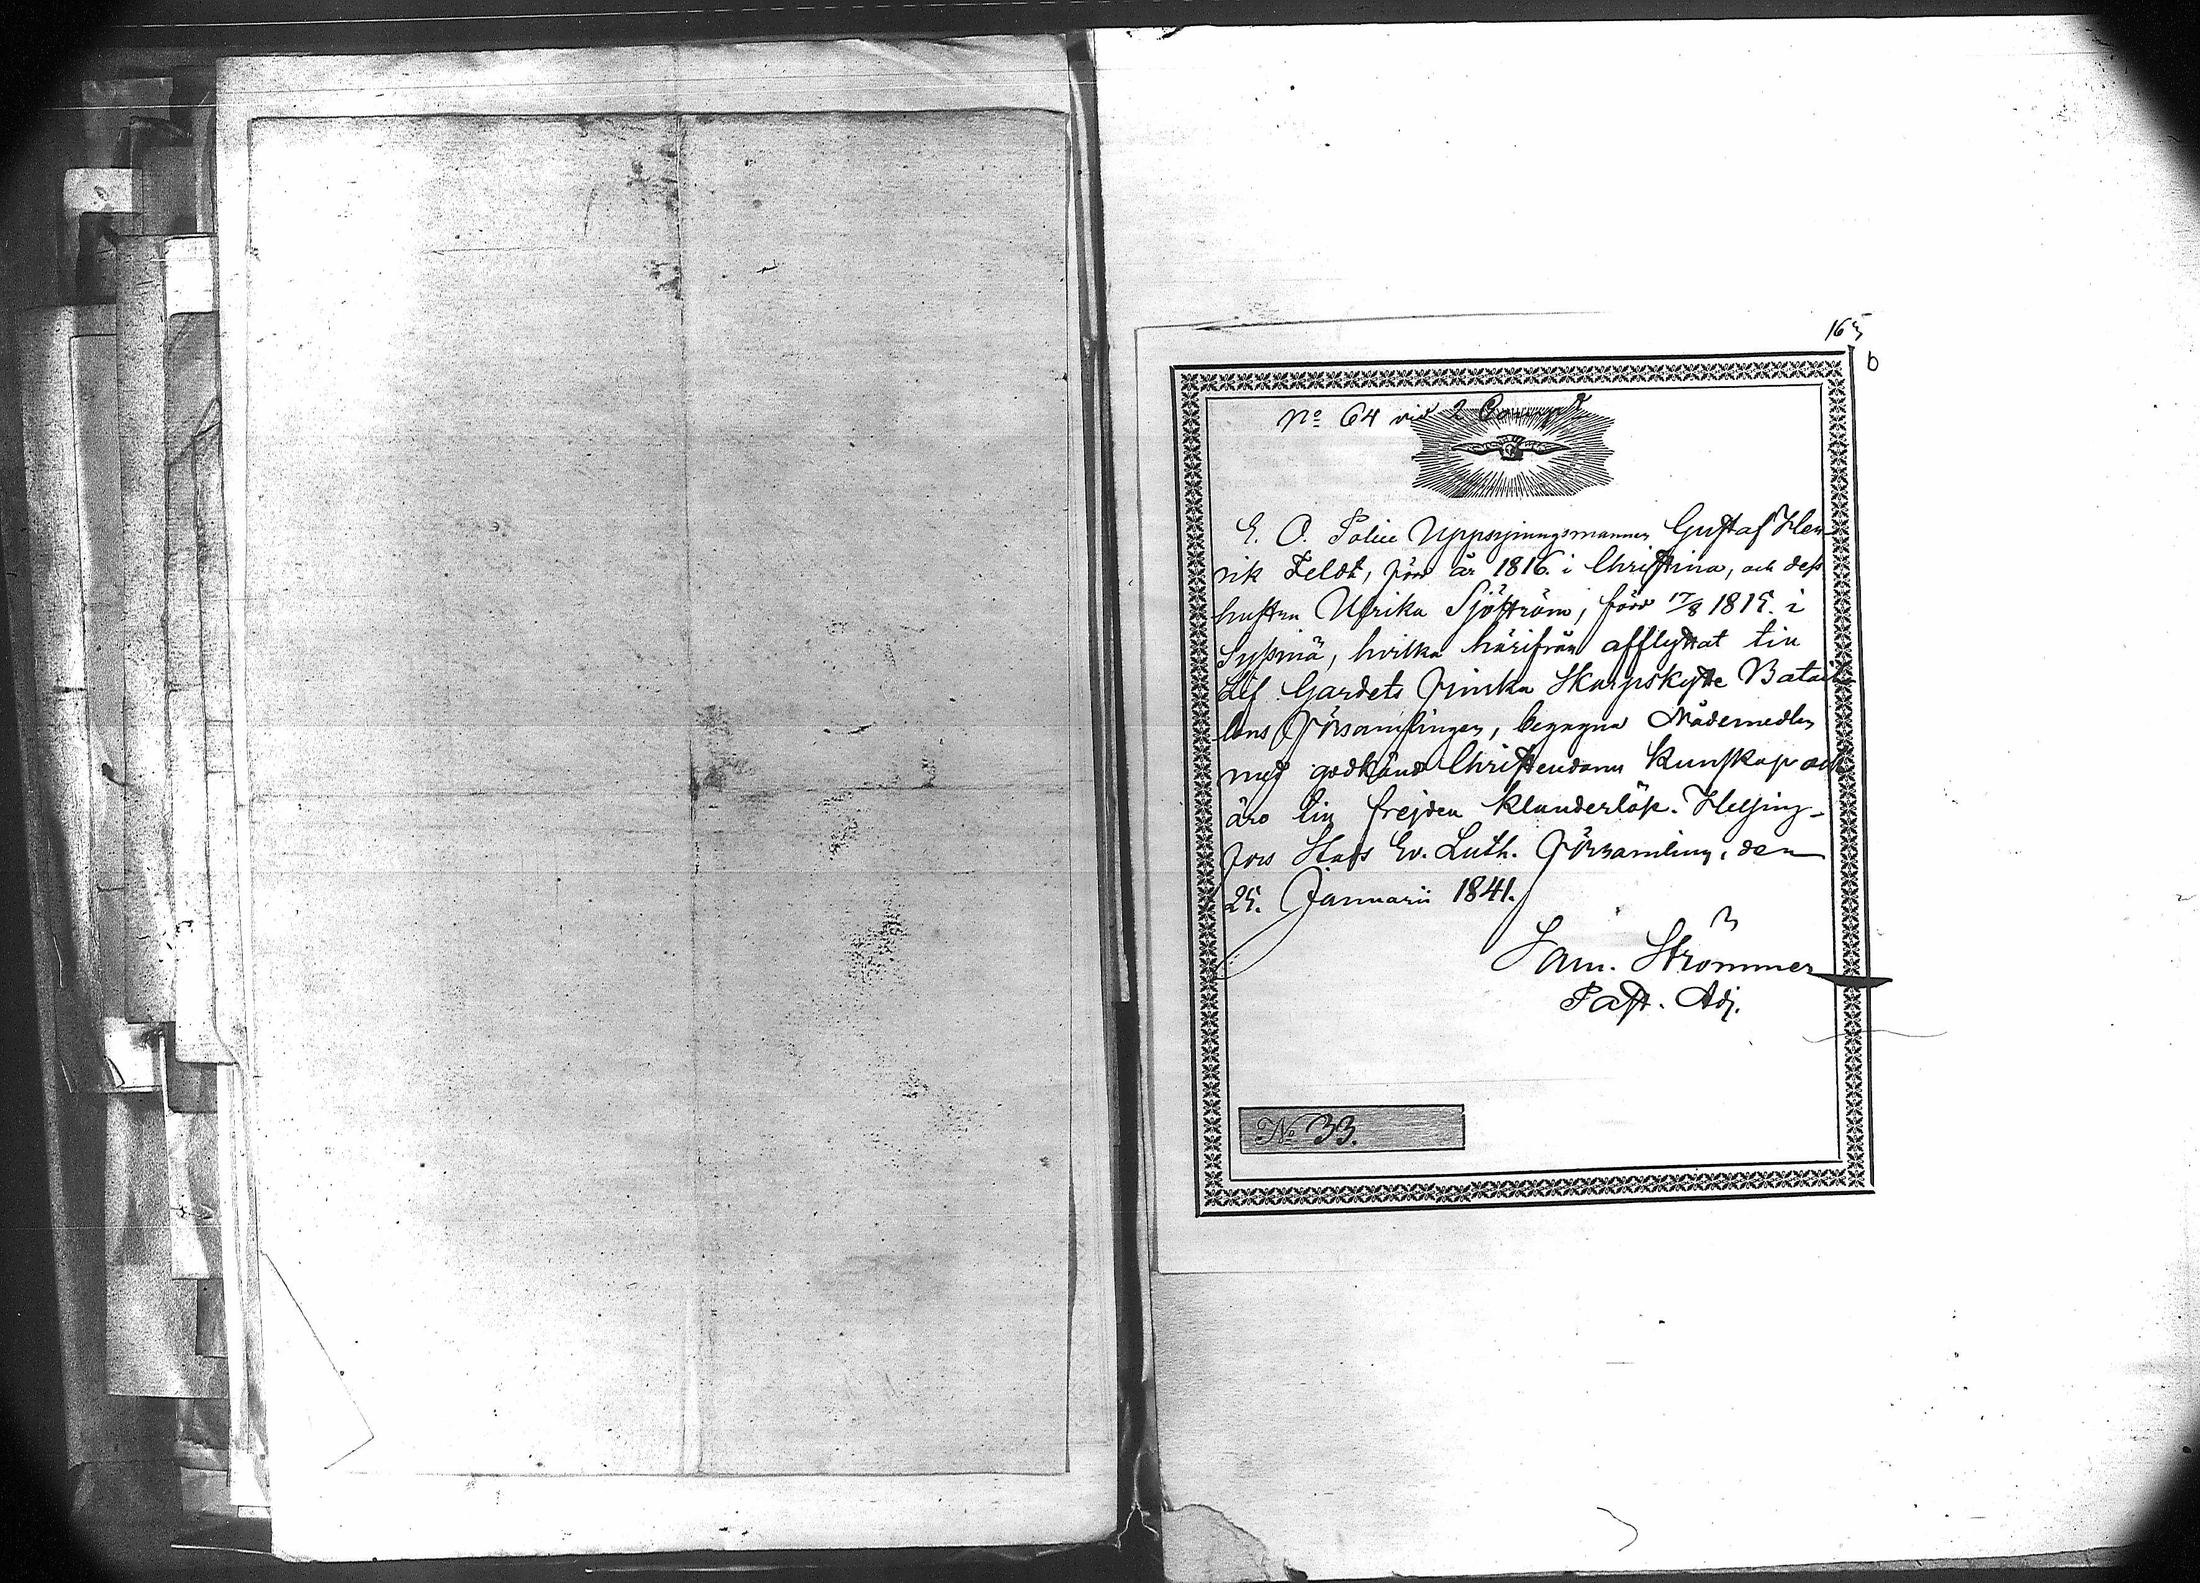 165
b
No 64 vid 2 Comp
E. O. Police Uppsyningsmannen Gustaf Hen-
rik Feldt, född år 1816. i Christina, och dess
hustru Ulrika Sjöström, född 17/8 1815. i
Sysmä, hvilka härifrån afflyttat till
Lif Gardets Finska Skarpskytte Batail-
lons Församlingen, begagna Nådemedlen
med godkänd Christendoms Kunskap och
äro till frejden klanderlöse. Helsing-
fors Stads Ev. Luth. Församling, den
25. Januarii 1841.
Sam. Strömmer
Past. Adj.
No 33.